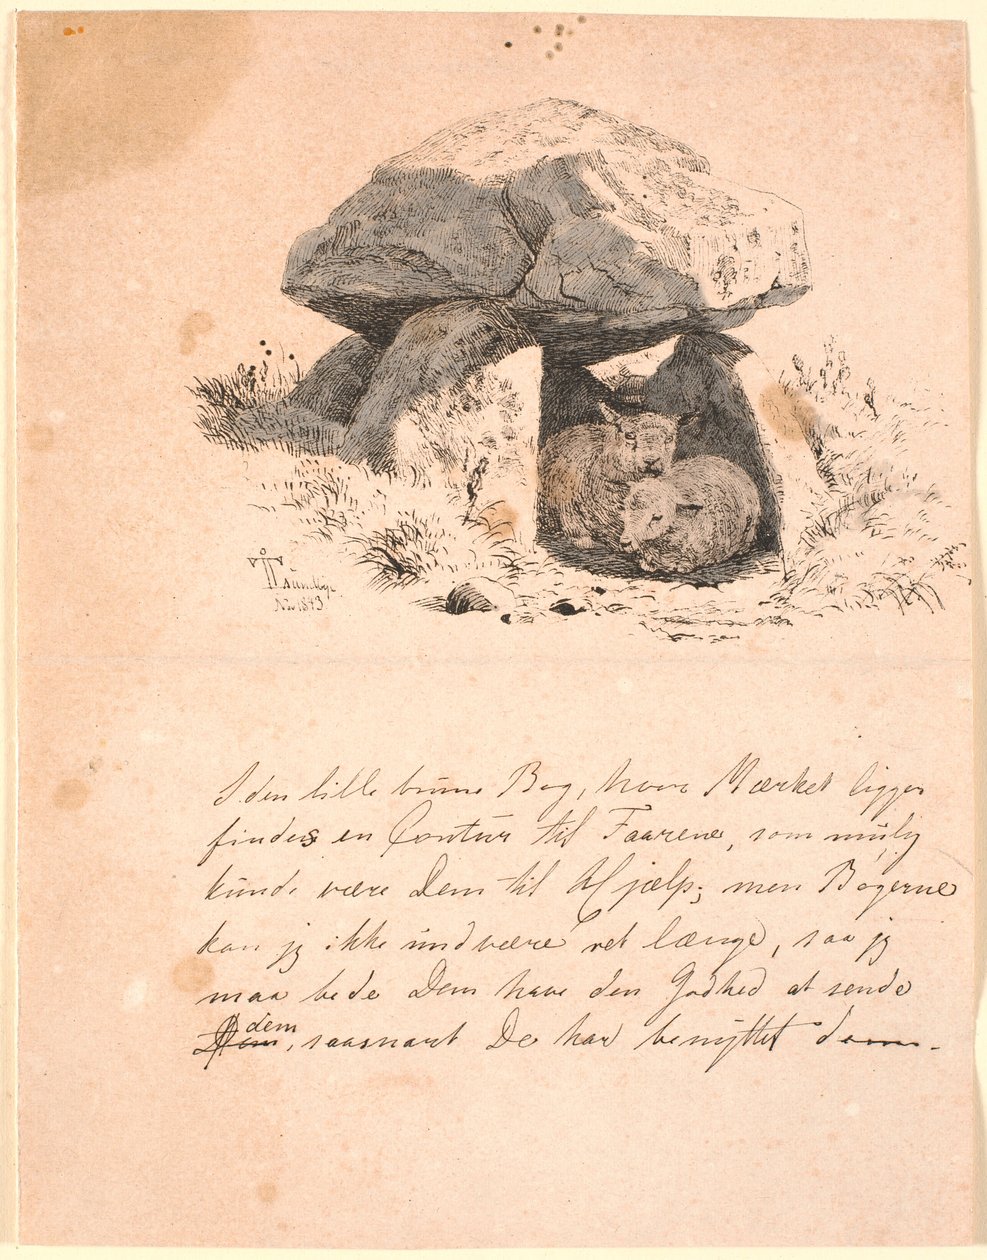 Nr 1843
I den lille brune Bog, hvor Mærket ligger
findes en Contur til Faarene, som mulig
kunde være Dem til Hjælp; men Bøgerne
kan jg ikke undvære ret længe, saa jg
maa bede Dem have den Godhed at sende
dem, saasnart De har benyttet dem.